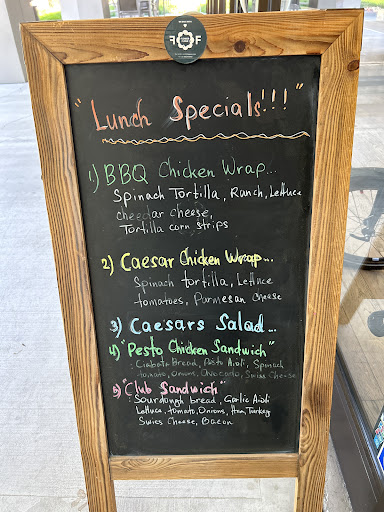 F F
"Lunch Specials!!!"
1) BBQ Chicken Wrap...
Spinach Tortilla, Ranch, Lettuce
cheedar cheese,
Tortilla corn strips
2) Caesar Chicken Wrap...
Spinach tortilla, Lettuce
tomatoes, Parmesan cheese
3) Caesars Salad...
4) "Pesto Chicken Sandwich"
- Ciabatta Bread, Pesto Aioli, Spinach
tomato, Onions, Avocado, Swiss Cheese
5) "Club Sandwich"
- Sourdough bread, Garlic Aioli
Lettuce, tomato, Onions, Ham, Turkey
Swiss Cheese, Bacon